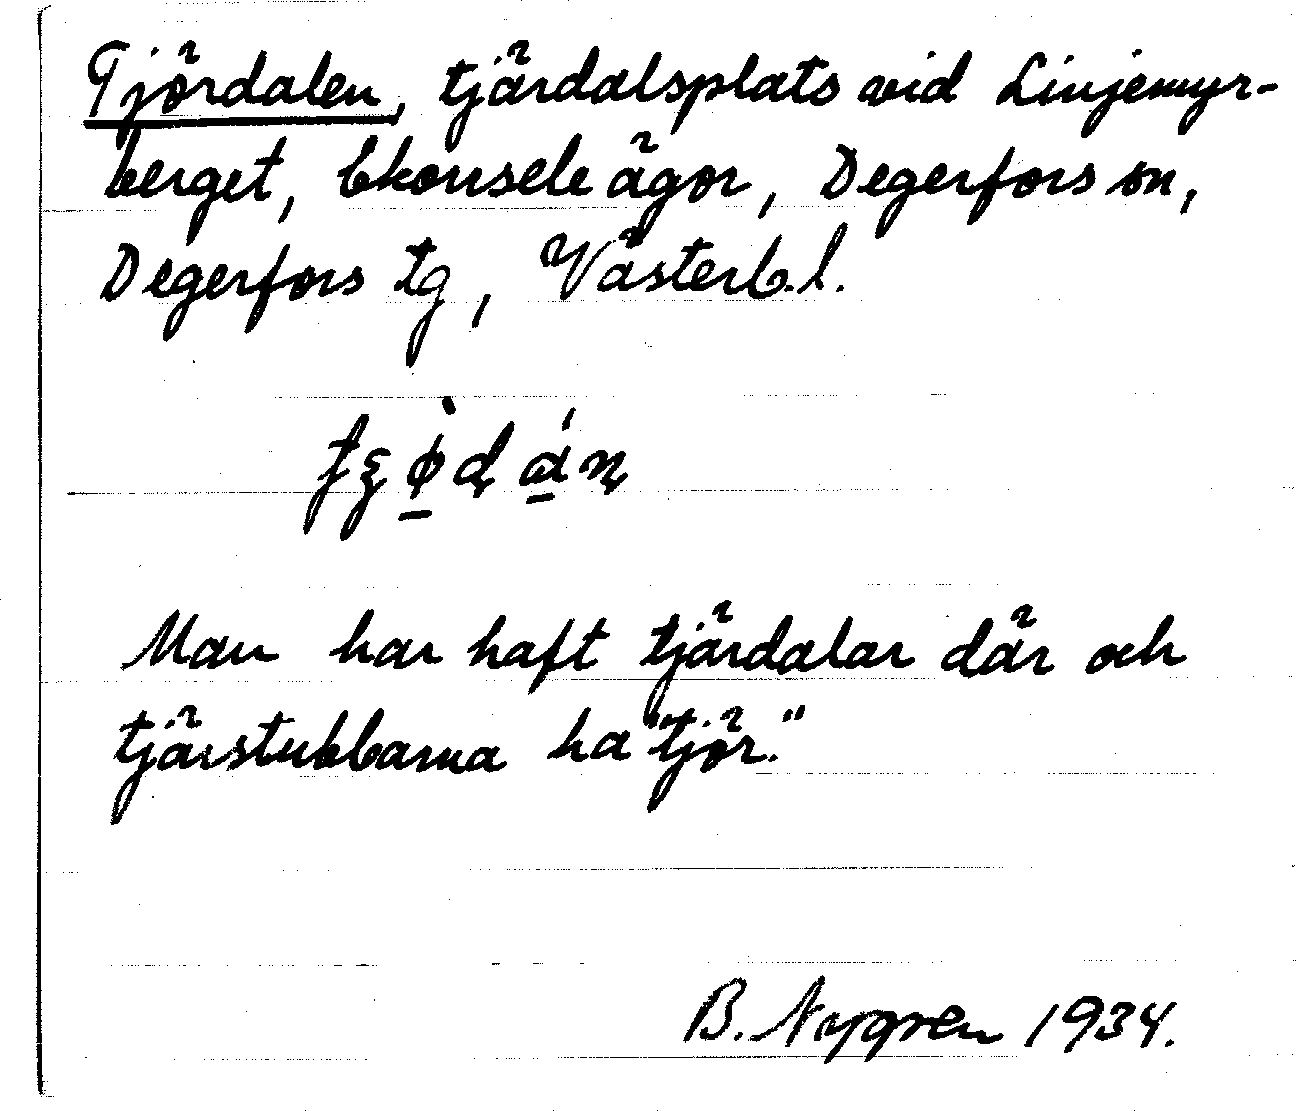 Tjördalen, tjärdalsplats vid Linjemyr-
berget, Ekonsele ägor, Degerfors sn,
Degerfors tg, Västerb.l.
Man har haft tjärdalar där och
tjärstubbarna ha "tjör."
B. Nygren 1934.